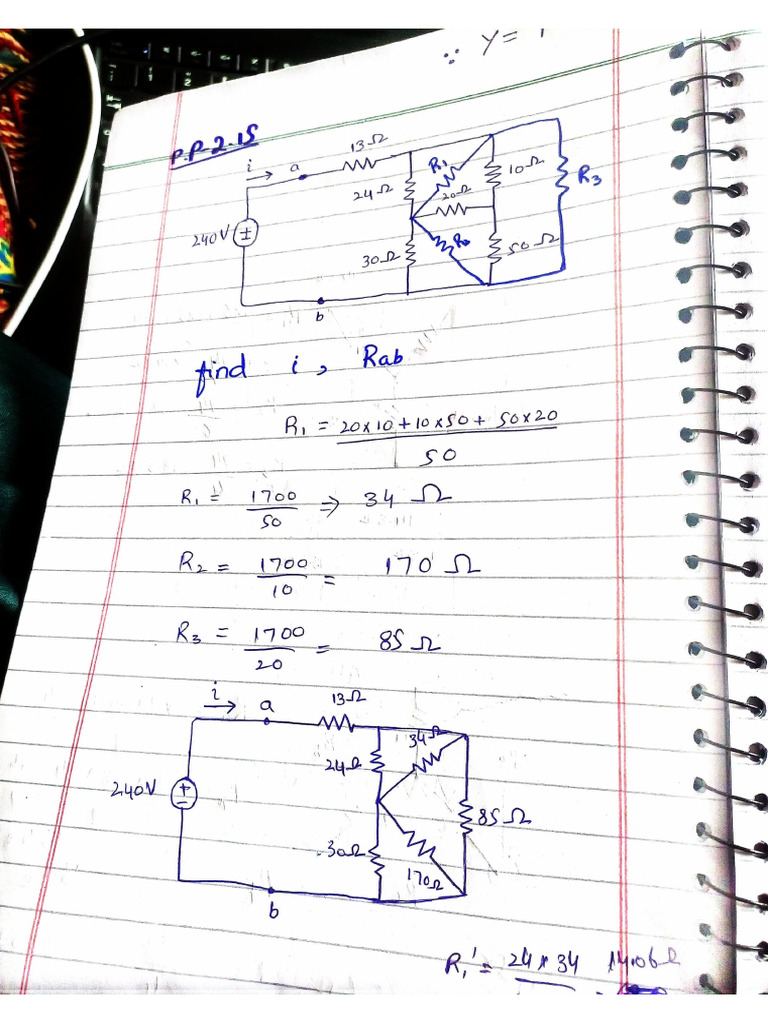 ∵ y =
P.P.2.15
i a 13Ω
24Ω R₁ 10Ω R₃
20Ω
240V ±
30Ω 50Ω
b
find i , Rab
R₁ = 20x10+10x50+ 50x20
50
R₁ = 1700 ⇒ 34 Ω
50
R₂ = 1700 = 170 Ω
10
R₃ = 1700 = 85 Ω
20
i a 13Ω
34Ω
24Ω
240V ± 85Ω
30Ω
170Ω
b
R₁' = 24x34